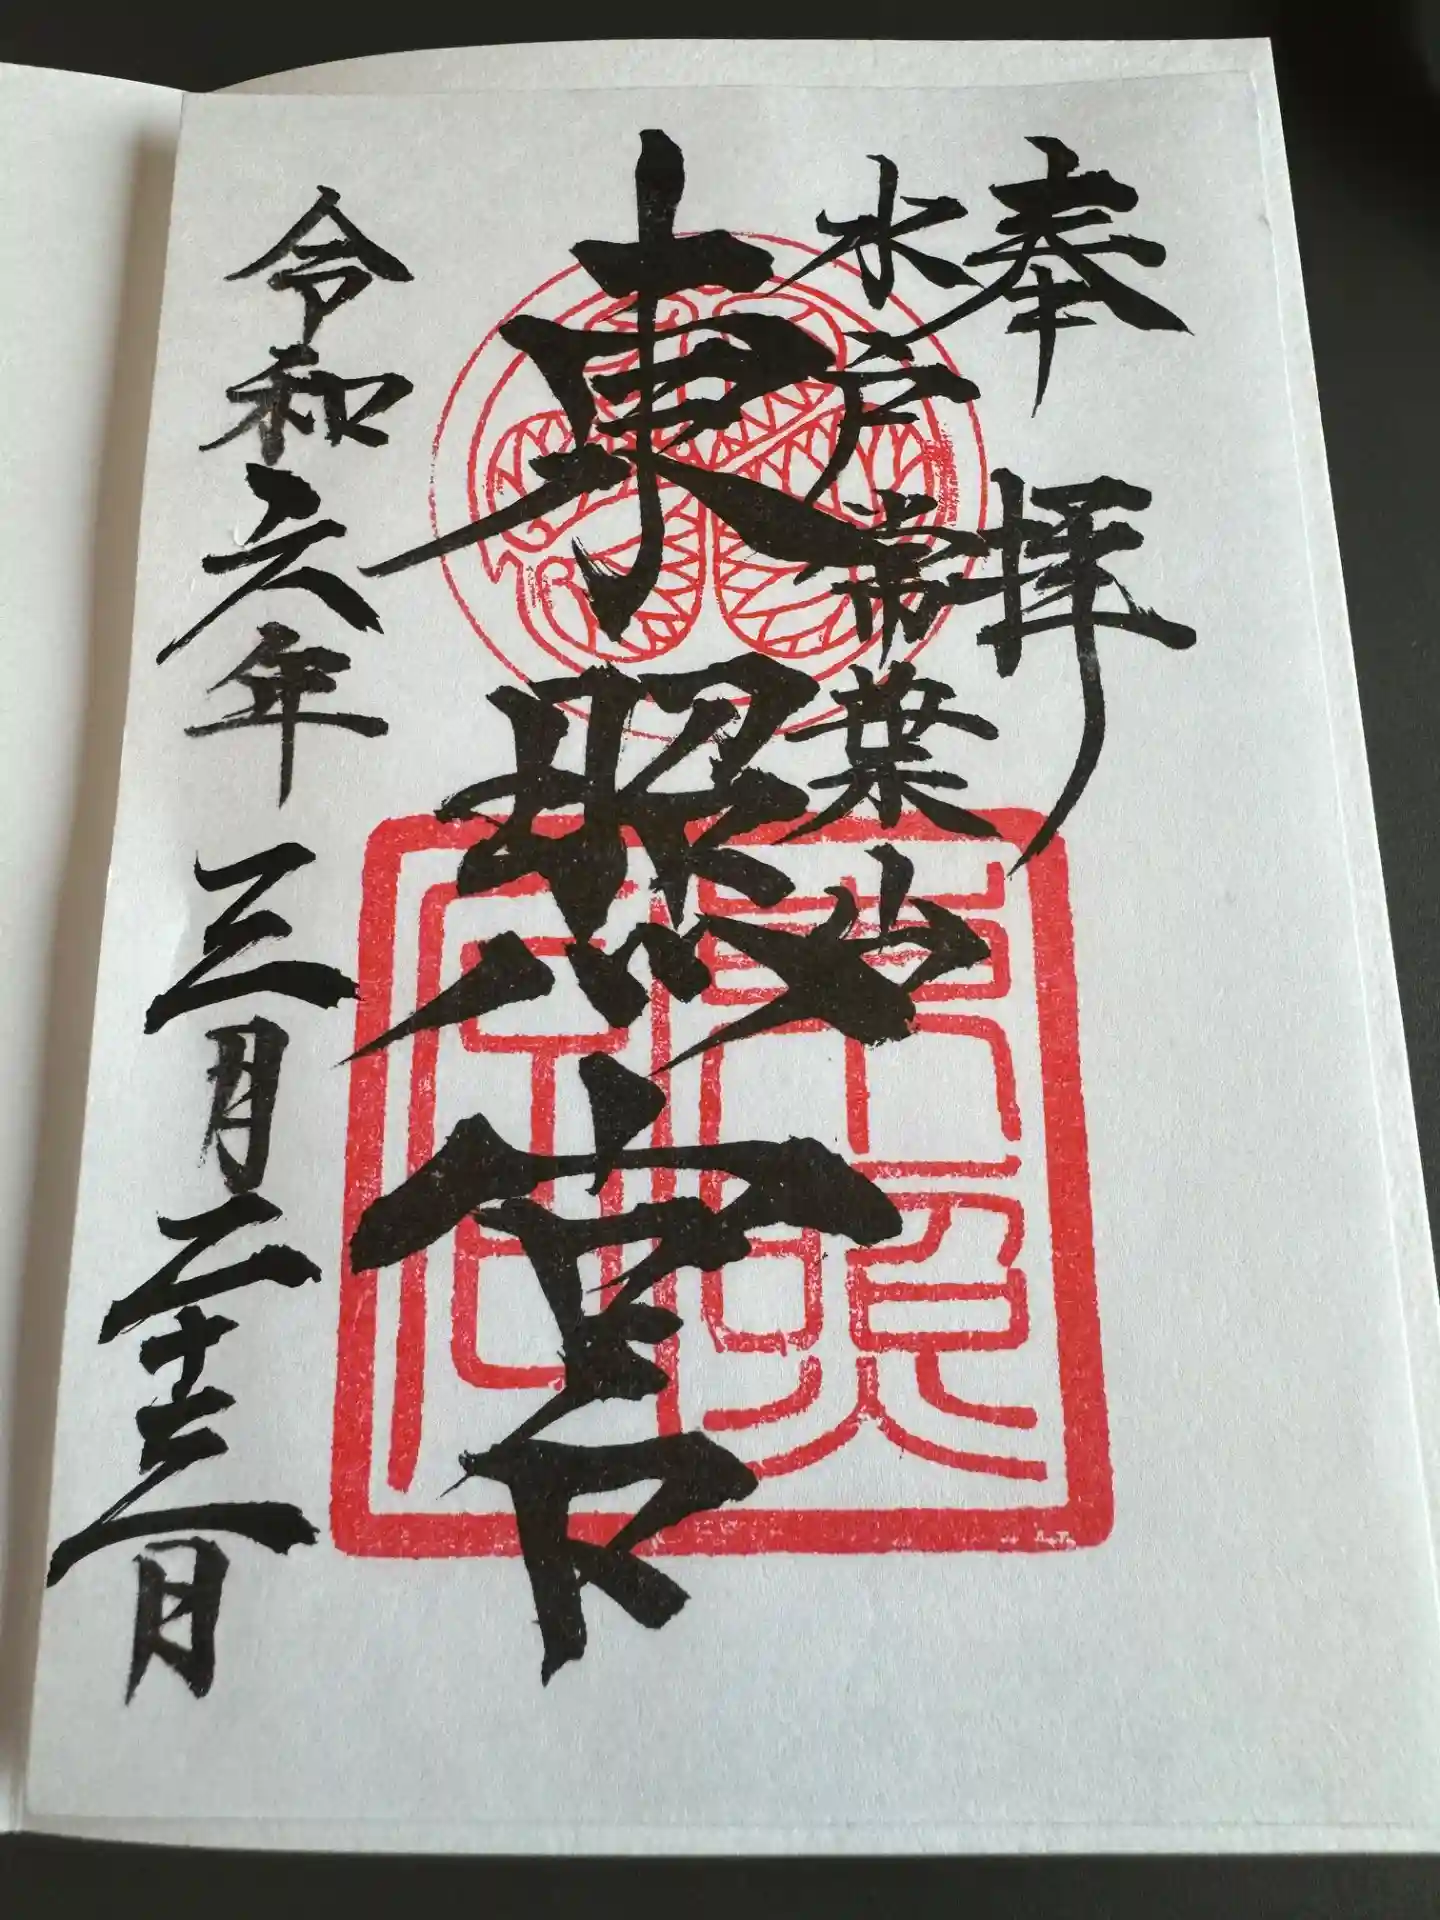 奉拝
水戸常葉山
東照宮
東照宮
令和六年三月二十三日